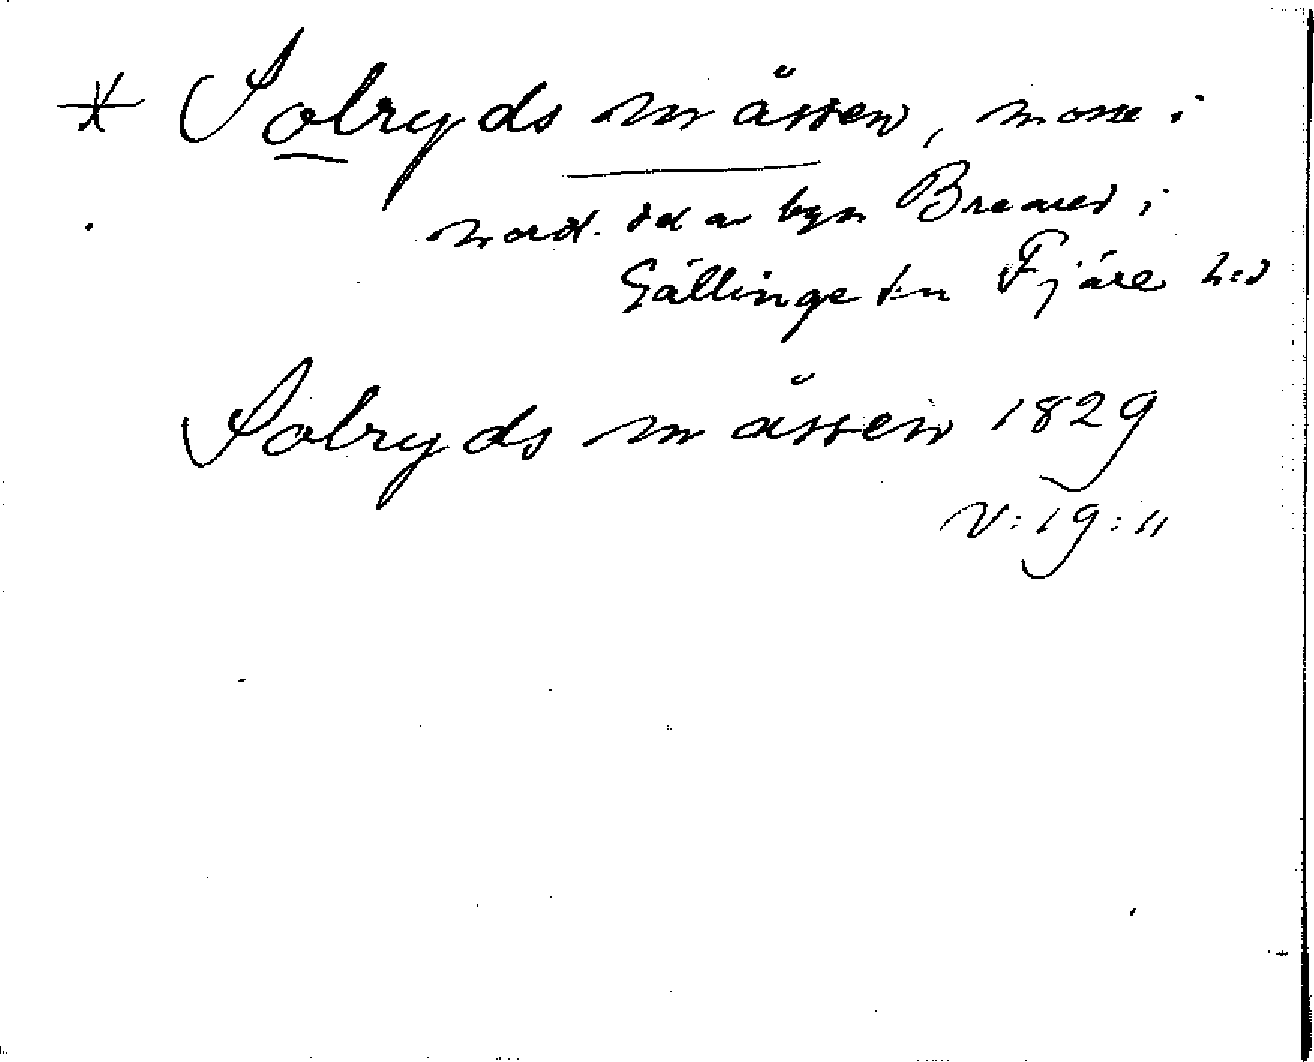 * Solryds måssen, mosse i
nord. del av byn Breared i
Gällinge sn Fjäre hd
Solryds måssen 1829
V:19:11